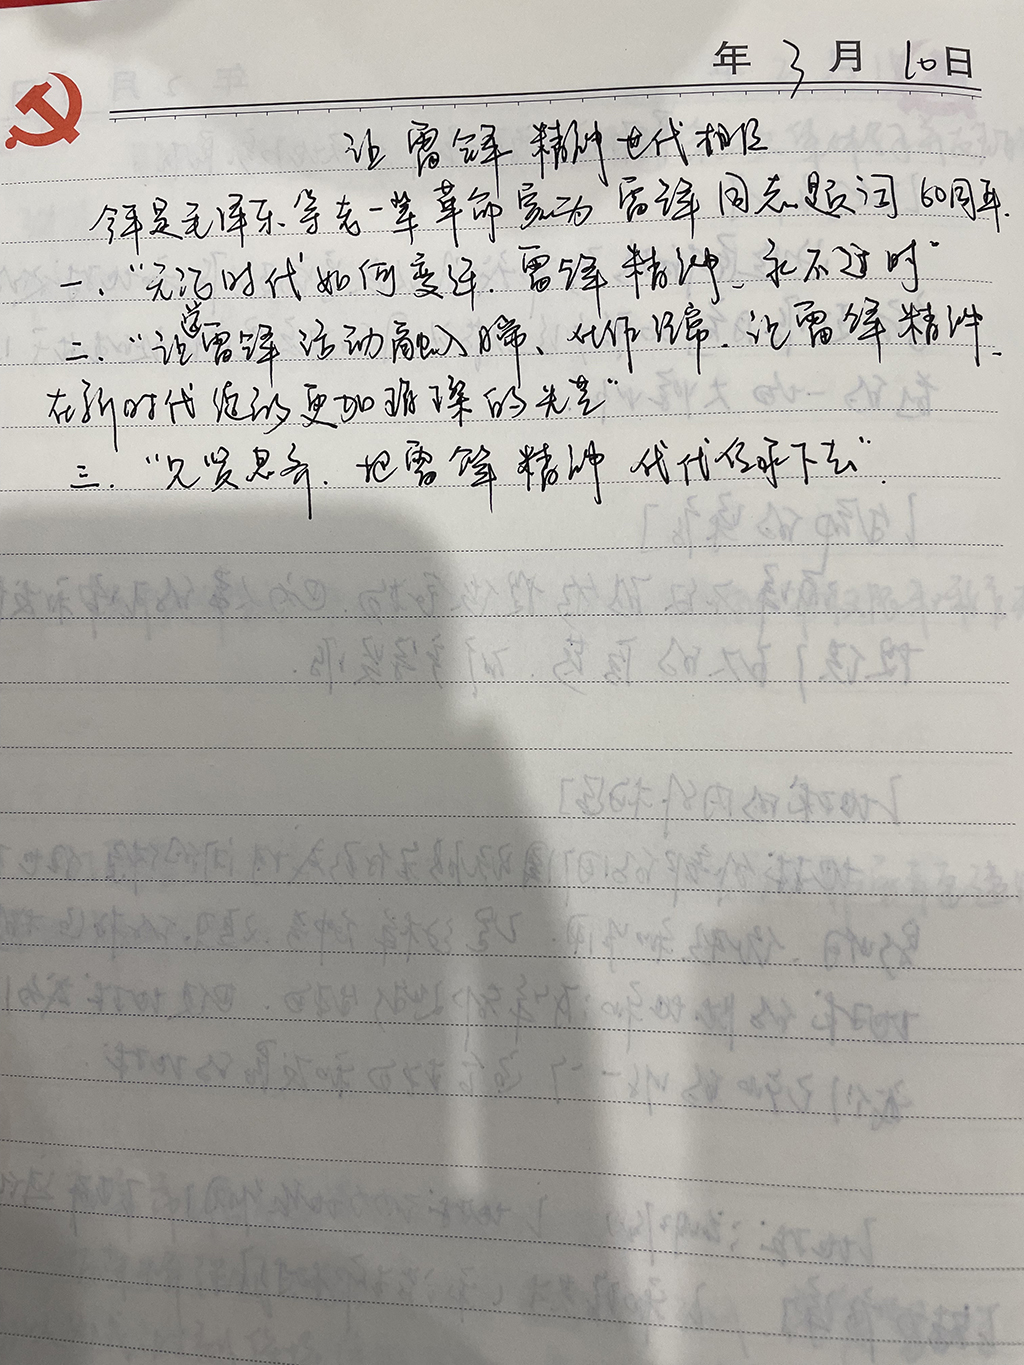 年 3 月 10 日
让雷锋精神世代相传
今年是毛泽东等老一辈革命家为雷锋同志题词60周年.
一、“无论时代如何变迁.雷锋精神、永不过时”
二、“让学雷锋活动融入日常、化作经常.让雷锋精神、
在新时代绽放更加璀璨的光芒”
三、“见贤思齐.把雷锋精神代代传承下去”.